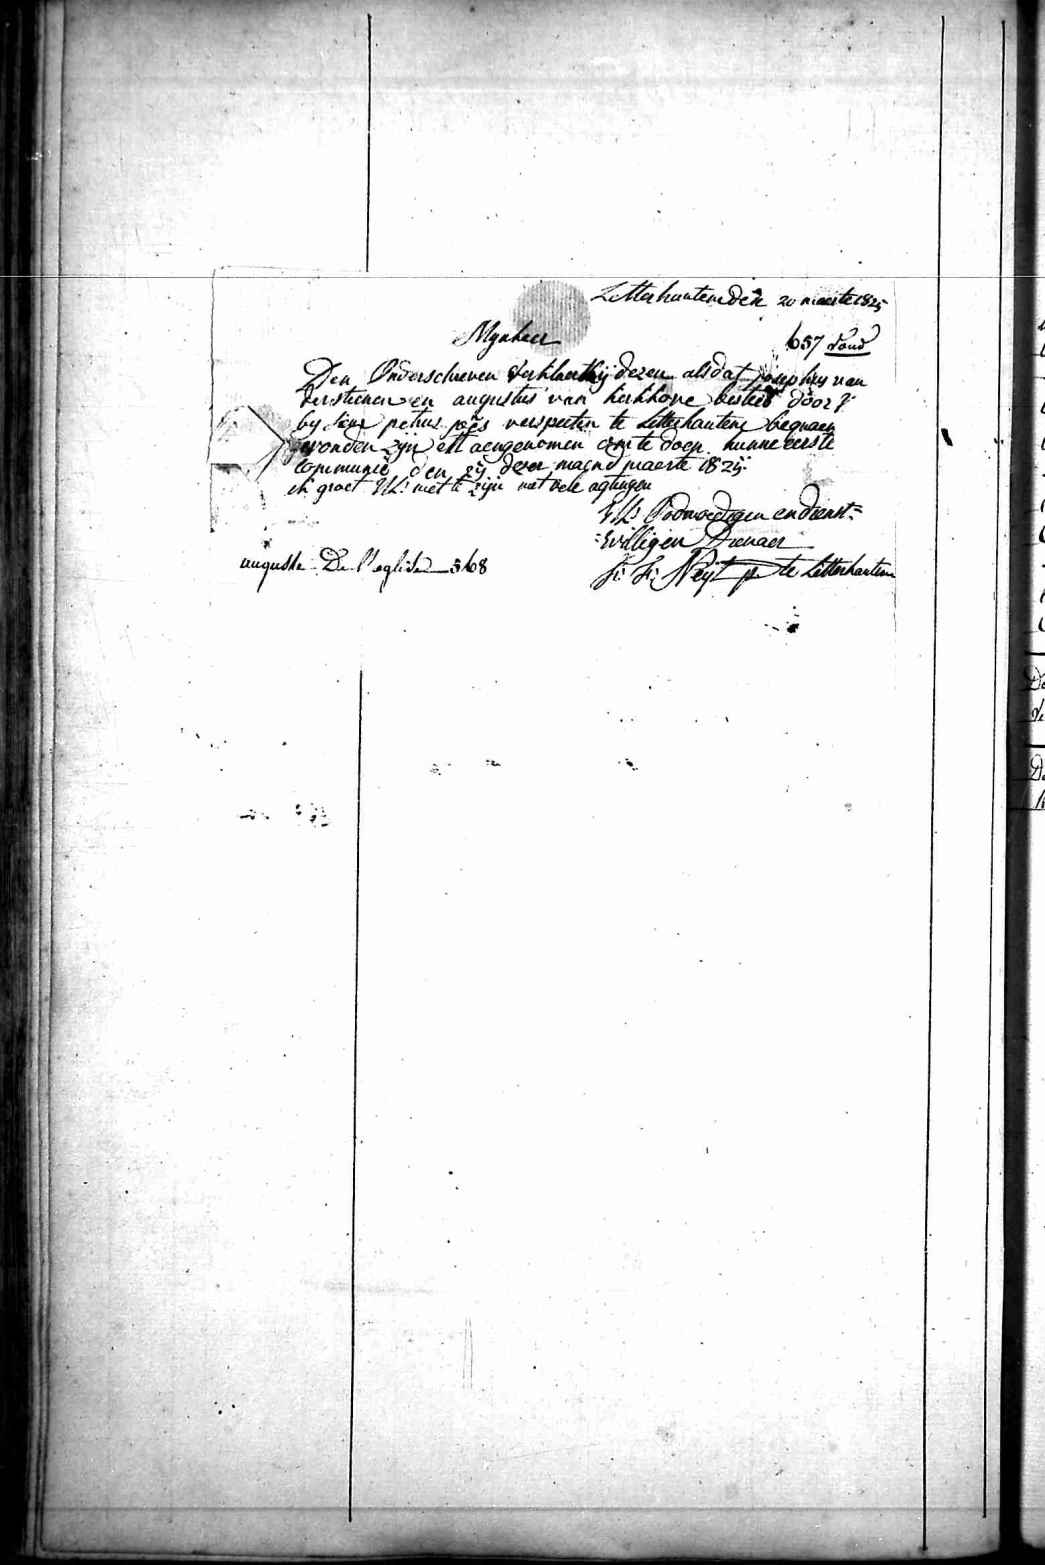 Letterhautem den 20 maerte 1825
Mynheer
657 Vond
Den Onderschreven verklaert bij dezen als dat josephus van
verstichen en augustus van kerkhove besteld door
by sieur petrus verspecten te Letterhautem bequaem
gevonden zijn en aengenomen om te doen hunne eerste
Communie den 27 dezer maend maerte 1825
ik groet UL: met te zijn met vele agtingen
ULs Oodmoedigen en dienst=
=willigen Dienaer
auguste De l'eglise 368
Neyt te Letterhautem